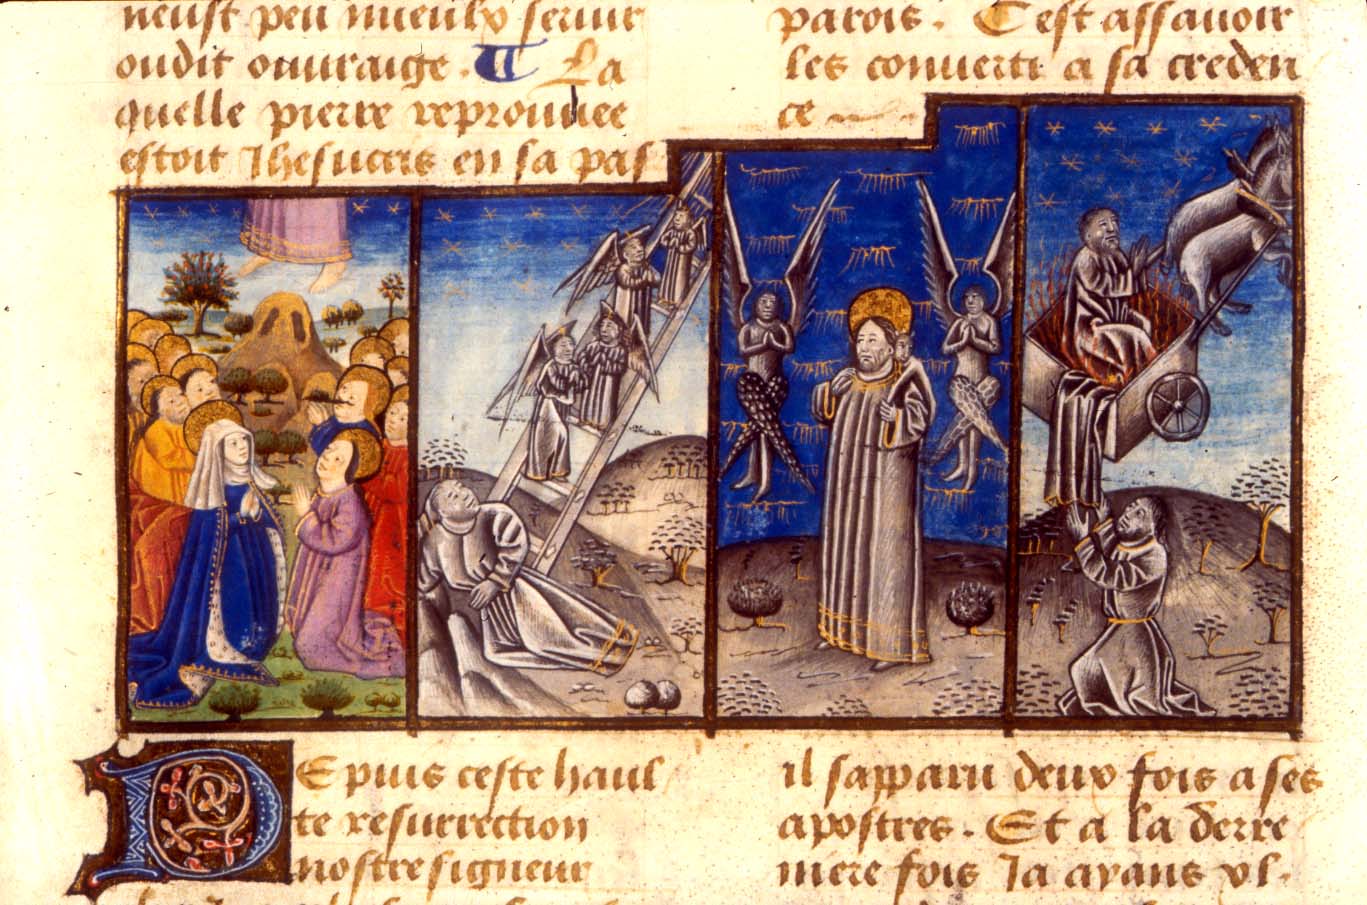 neust peu mieulx servir
oudit ouuraige. La
quelle pierre reprouuee
estoit Jhesucris en sa pas
parois. Cest assauoir
les conuertt a sa creden
ce
DEpuis ceste haul
te resurrection
nostre signeur
il sapparu deux fois a ses
apostres. Et a la derre
niere fois Ja ayans vl